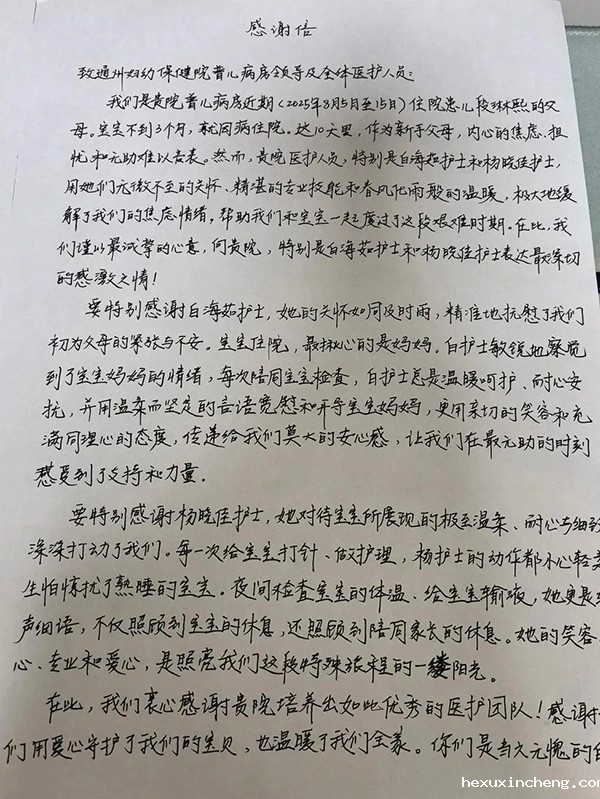 感谢信
致通州妇幼保健院普儿病房领导及全体医护人员:
我们是贵院普儿病房近期(2025年8月5日至15日)住院患儿段琳熙的父
母。宝宝不到3个月,就因病住院。这10天里,作为新手父母,内心的焦虑、担
忧和无助难以言表。然而,贵院医护人员,特别是白海茹护士和杨晓佳护士,
用她们无微不至的关怀、精湛的专业技能和春风化雨般的温暖,极大地缓
解了我们的焦虑情绪,帮助我们和宝宝一起度过了这段艰难时期。在此,我
们谨以最诚挚的心意,向贵院,特别是白海茹护士和杨晓佳护士表达最深切
的感激之情!
要特别感谢白海茹护士,她的关怀如同及时雨,精准地抚慰了我们
初为父母的紧张与不安。宝宝住院,最揪心的是妈妈。白护士敏锐地察觉
到了宝宝妈妈的情绪,每次陪同宝宝检查,白护士总是温暖呵护、耐心安
抚,并用温柔而坚定的言语宽慰和开导宝宝妈妈,更用亲切的笑容和充
满同理心的态度,传递给我们莫大的安心感,让我们在最无助的时刻
感受到了支持和力量。
要特别感谢杨晓佳护士,她对待宝宝所展现的极至温柔、耐心与细致
深深打动了我们。每一次给宝宝打针、做护理,杨护士的动作都小心轻柔
生怕惊扰了熟睡的宝宝。夜间检查宝宝的体温、给宝宝输液,她更是
声细语,不仅照顾到宝宝的休息,还照顾到陪同家长的休息。她的笑容、
心、专业和爱心,是照亮我们这段特殊旅程的一缕阳光。
在此,我们衷心感谢贵院培养出如此优秀的医护团队!感谢
们用爱心守护了我们的宝贝,也温暖了我们全家。你们是当之无愧的白
hexuxincheng.com